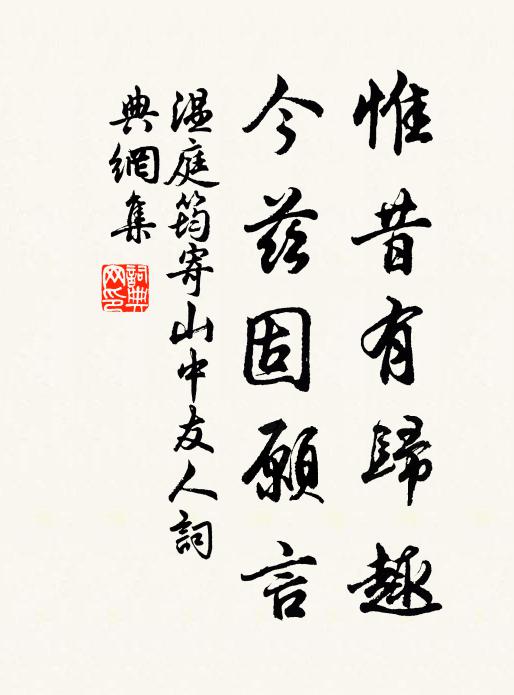 惟昔有歸趣
今茲固願言
温庭筠寄山中友人詞
典網集
詞典網印